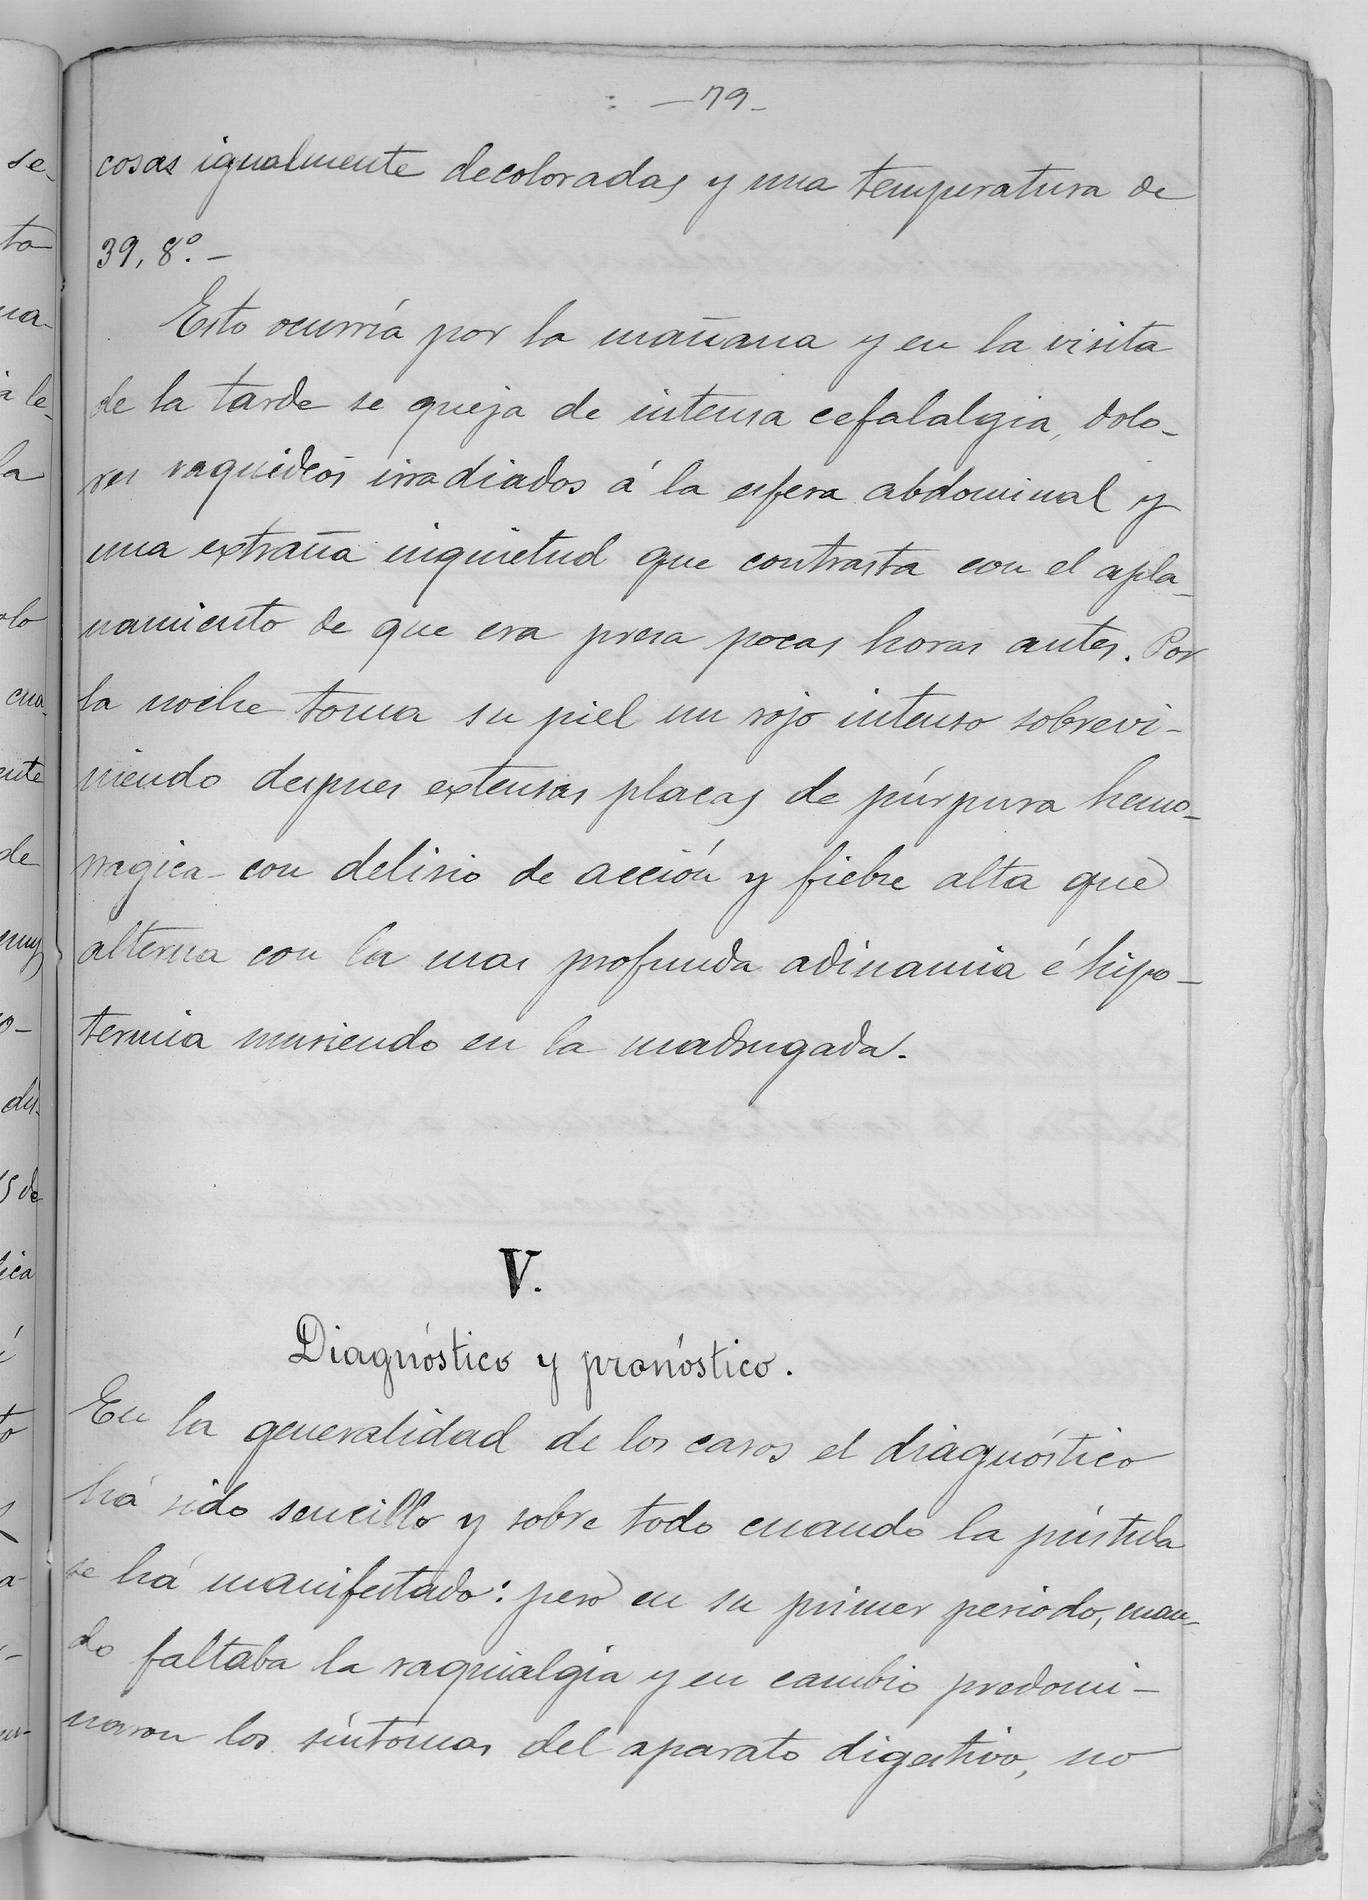 —79—
cosas igualmente decoloradas y una temperatura de
39,8º.—
Esto ocurría por la mañana y en la visita
de la tarde se queja de intensa cefalalgia, dolo-
res raquideos irradiados á la esfera abdominal y
una extraña inquietud que contrasta con el apla-
namiento de que era presa pocas horas antes. Por
la noche toma su piel un rojo intenso sobrevi-
niendo despues extensas placas de púrpura hemo-
rragica con delirio de acción y fiebre alta que
alterna con la mas profunda adinamia é hipo-
termia muriendo en la madrugada.
V.
Diagnóstico y pronóstico.
En la generalidad de los casos el diagnóstico
há sido sencillo y sobre todo cuando la pústula
se há manifestado: pero en su primer periodo, cuan-
do faltaba la raquialgia y en cambio predomi-
naron los síntomas del aparato digestivo, no
se-
to
na-
a le-
la
olo
cua-
ente
de
muy
o-
du-
is de
ica
é
to
a-